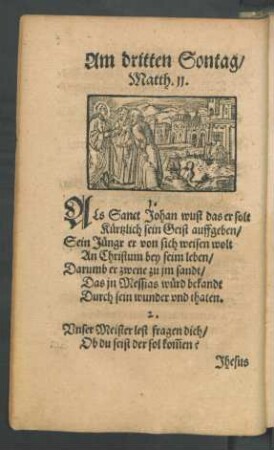 Am dritten Sontag/
Matth. 11.
1.
Als Sanct Johan wust das er solt
Kürtzlich sein Geist auffgeben/
Sein Jünger er von sich weisen wolt
An Christum bey seim leben/
Darumb er zwene zu jm sandt/
Das jn Messias würd bekandt
Durch sein wunder vnd thaten.
2.
Vnser Meister lest fragen dich/
Ob du seist der sol kom̃en?
Jhesus